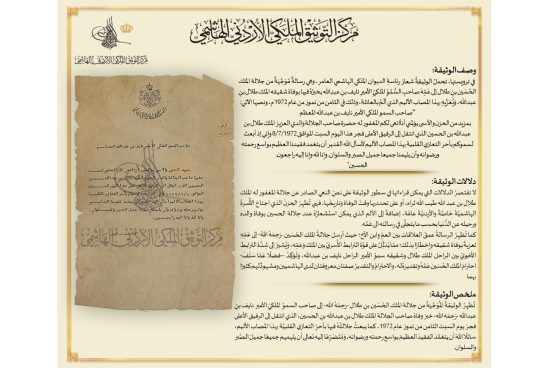 مركز التوثيق الملكي الأردني الهاشمي
مركز التوثيق الملكي الأردني الهاشمي
وصف الوثيقة:
في ترويستها، تحمل الوثيقة شعار رئاسة الديوان الملكي الهاشمي العامر، وهي رسالة موجهة من جلالة الملك
الحسين بن طلال إلى عمه صاحب السمو الملكي الأمير نايف بن عبدالله يخبره فيها بوفاة شقيقه الملك طلال بن
عبدالله، ويعزيه بهذا المصاب الأليم الذي ألم بالعائلة، وذلك في الثامن من تموز من عام 1972م، ونصها الآتي:
"صاحب السمو الملكي الأمير نايف بن عبدالله المعظم
بمزيد من الحزن والأسى يؤلمني أن أنعى لكم المغفور له حضرة صاحب الجلالة والدي العزيز الملك طلال بن
عبدالله بن الحسين الذي انتقل إلى الرفيق الأعلى فجر هذا اليوم السبت الموافق 8/7/1972 وإني إذ أبعث
لسموكم بأحر التعازي القلبية بهذا المصاب الأليم لأسأل الله القدير أن يتغمد فقيدنا العظيم بواسع رحمته
ورضوانه وأن يلهمنا جميعا جميل الصبر والسلوان وإنا لله وإنا إليه راجعون
الحسين"
دلالات الوثيقة:
لا تقتصر الدلالات التي يمكن قراءتها في سطور الوثيقة على نص النعي الصادر عن جلالة المغفور له الملك
طلال بن عبدالله طيب الله ثراه، أو على تحديدها وقت الوفاة وتاريخها، فهي تظهر الحزن الذي اجتاح الأسرة
الهاشمية خاصة والأردنية عامة، إضافة إلى الألم الذي يمكن استشعاره عند جلالة الحسين بوفاة والده
ورحيله عن الدنيا بحسب ما يتجلى في رسالته إلى عمه.
كما تظهر الرسالة عمق العلاقات بين العم وابن الأخ؛ حيث أرسل جلالة الملك الحسين -رحمه الله- إلى عمه
تعزية بوفاة شقيقه وإخطارا بذلك؛ مما يدلل على قوة الترابط الأسري بين الملك وعمه، ويشير إلى شدة الترابط
الأخوي بين الراحل الملك طلال وشقيقه سمو الأمير الراحل نايف بن عبدالله، وتؤكد -فضلا عما سلف-
احترام الملك الحسين عمه وتقديره له، والاحترام والتقدير صفتان معروفتان لدى الهاشميين ومشهود لهم كثيرا
بهما
ملخص الوثيقة:
تظهر الوثيقة الموجهة من جلالة الملك الحسين بن طلال -رحمه الله- إلى صاحب السمو الملكي الأمير نايف بن
عبدالله -رحمه الله- خبر وفاة صاحب الجلالة الملك طلال بن عبدالله بن الحسين، الذي انتقل إلى الرفيق الأعلى
فجر يوم السبت الثامن من تموز عام 1972، كما يبعث جلالته فيها بأحر التعازي القلبية بهذا المصاب الأليم،
سائلا الله أن يتغمد الفقيد العظيم بواسع رحمته ورضوانه، ومتضرعا إليه تعالى أن يلهمهم جميعا جميل الصبر
والسلوان.